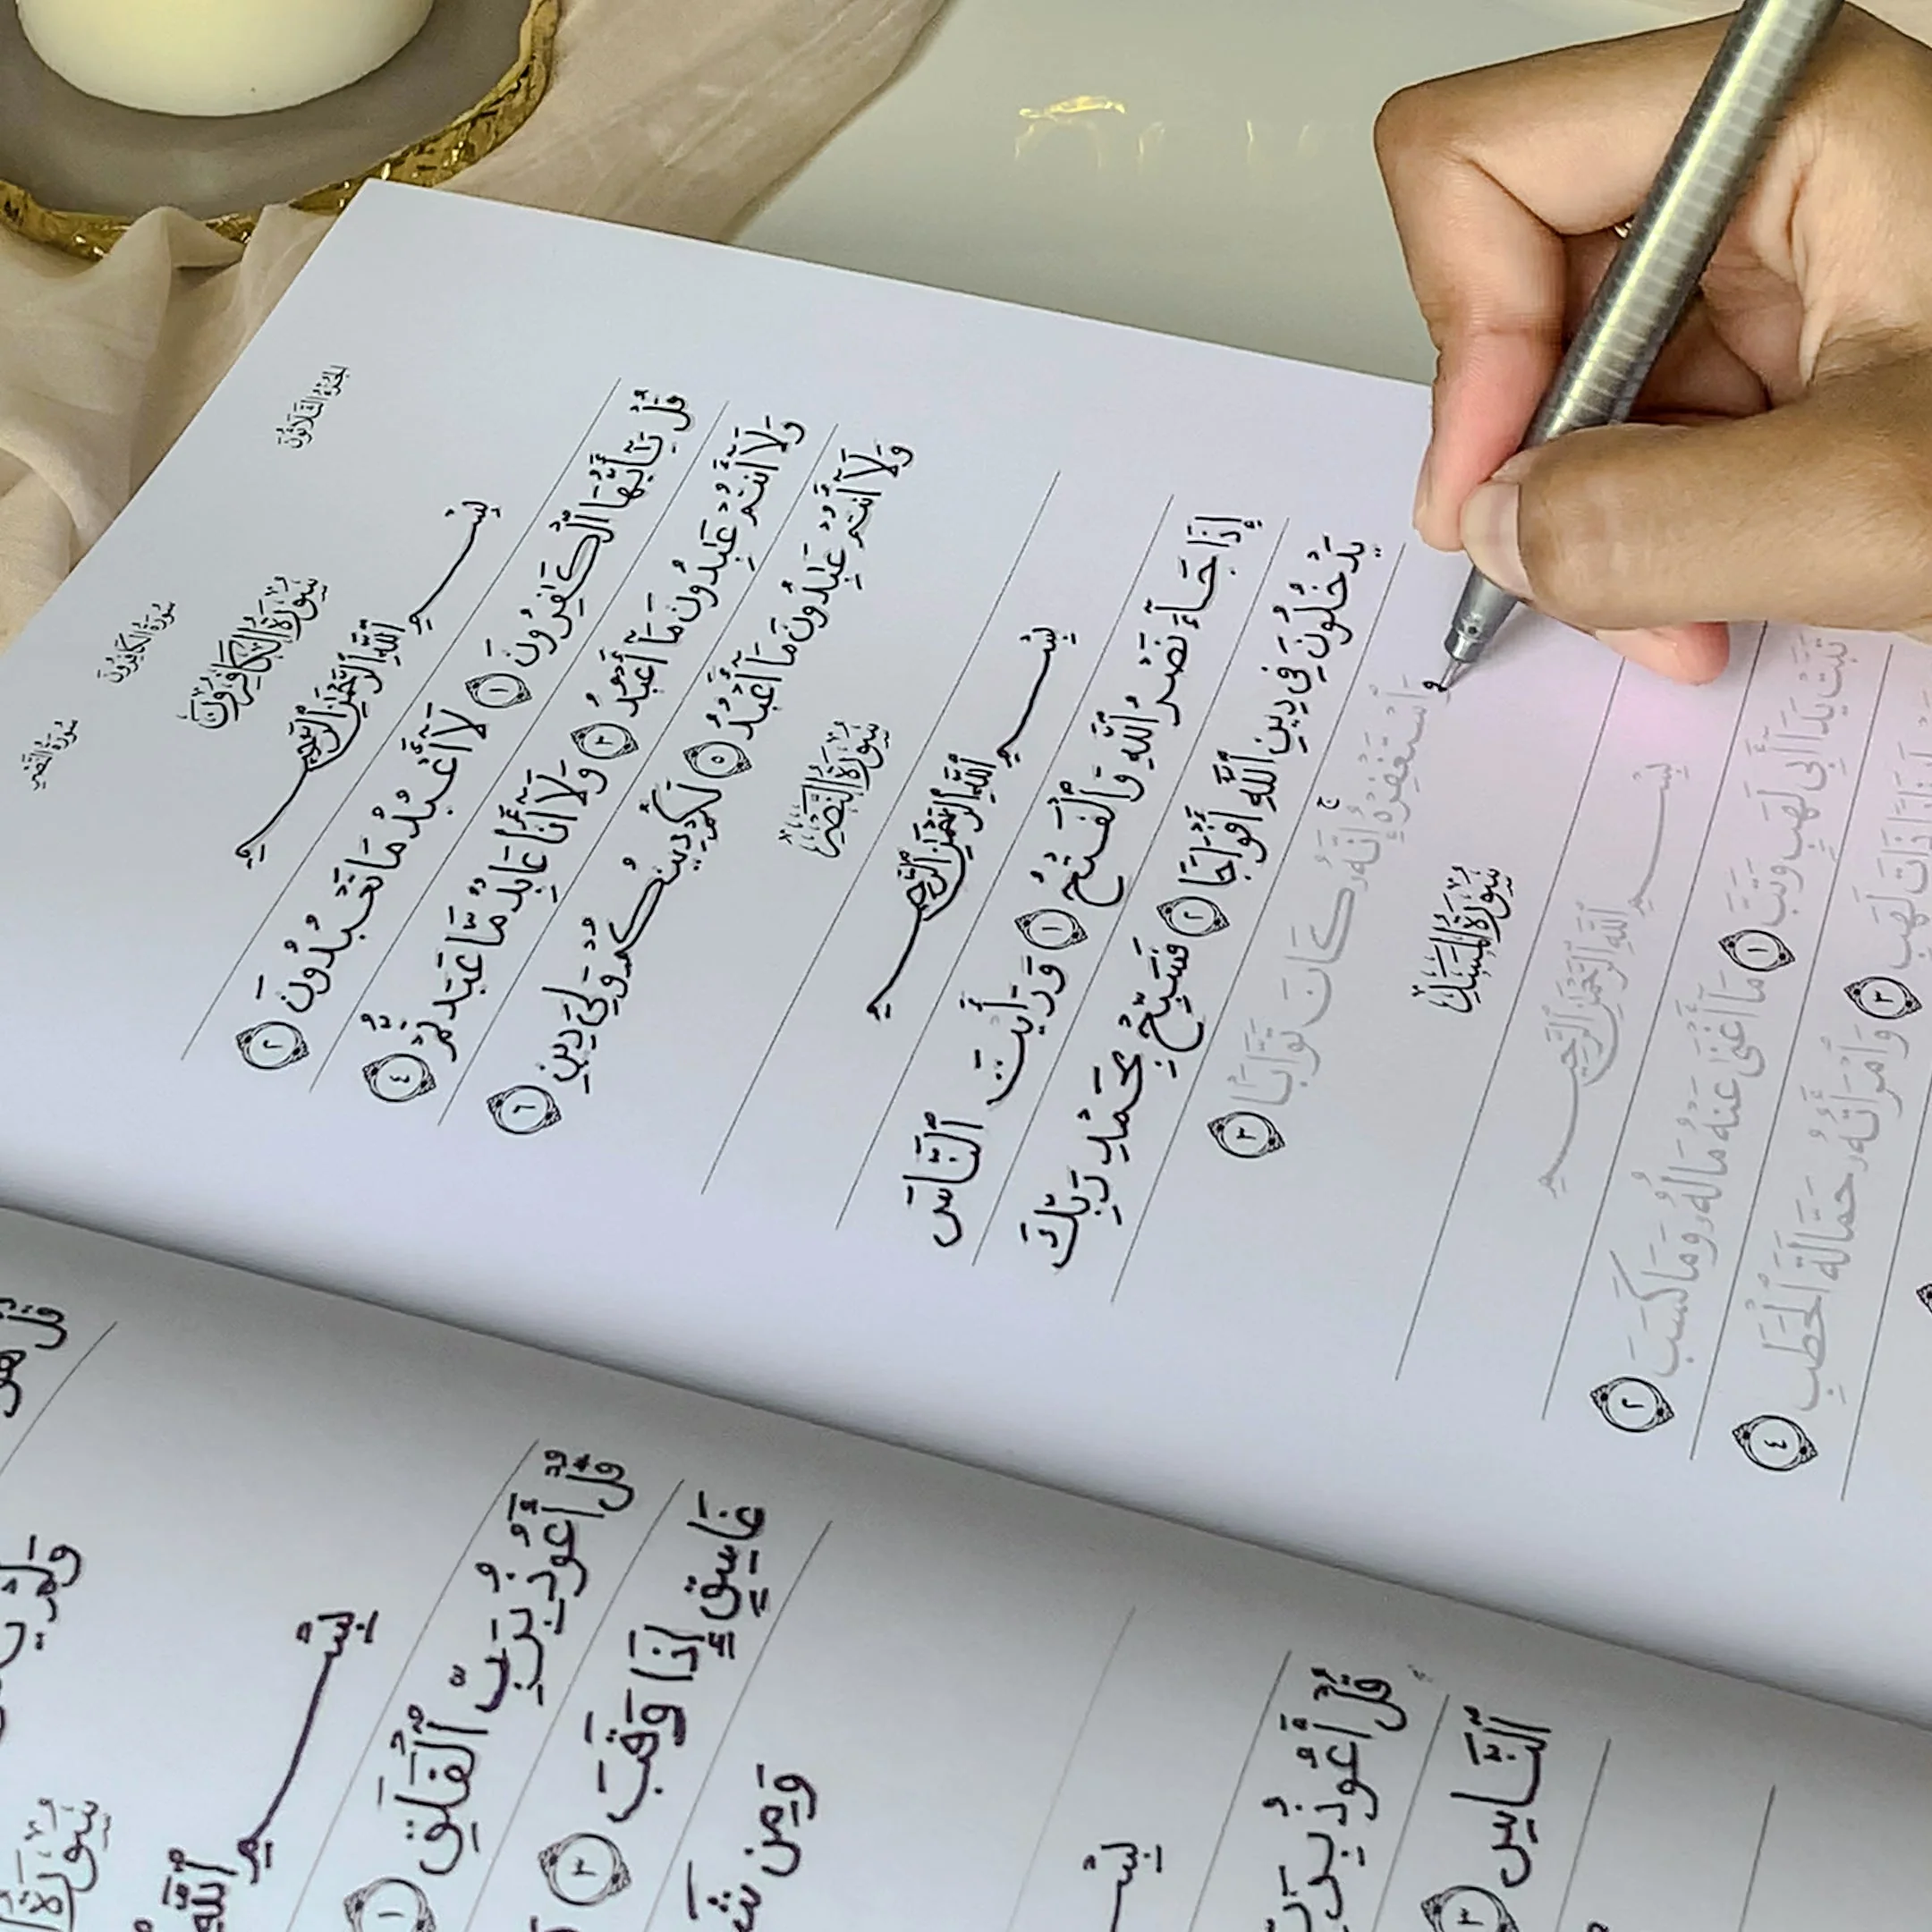 الجزء الثلاثون
سورة الكافرون
سورة النصر
سُورَةُ الكَافِرُونَ
بِسْمِ ٱللَّهِ ٱلرَّحْمَٰنِ ٱلرَّحِيمِ
قُلْ يَٰٓأَيُّهَا ٱلْكَٰفِرُونَ ١ لَآ أَعْبُدُ مَا تَعْبُدُونَ ٢
وَلَآ أَنتُمْ عَٰبِدُونَ مَآ أَعْبُدُ ٣ وَلَآ أَنَا۠ عَابِدٌ مَّا عَبَدتُّمْ ٤
وَلَآ أَنتُمْ عَٰبِدُونَ مَآ أَعْبُدُ ٥ لَكُمْ دِينُكُمْ وَلِيَ دِينِ ٦
سُورَةُ النَّصْرِ
بِسْمِ ٱللَّهِ ٱلرَّحْمَٰنِ ٱلرَّحِيمِ
إِذَا جَآءَ نَصْرُ ٱللَّهِ وَٱلْفَتْحُ ١ وَرَأَيْتَ ٱلنَّاسَ
يَدْخُلُونَ فِي دِينِ ٱللَّهِ أَفْوَاجًا ٢ فَسَبِّحْ بِحَمْدِ رَبِّكَ
وَٱسْتَغْفِرْهُ ۚ إِنَّهُۥ كَانَ تَوَّابًۢا ٣
سُورَةُ المَسَدِ
بِسْمِ ٱللَّهِ ٱلرَّحْمَٰنِ ٱلرَّحِيمِ
تَبَّتْ يَدَآ أَبِي لَهَبٍ وَتَبَّ ١ مَآ أَغْنَىٰ عَنْهُ مَالُهُۥ وَمَا كَسَبَ ٢
ذَاتَ لَهَبٍ ٣ وَٱمْرَأَتُهُۥ حَمَّالَةَ ٱلْحَطَبِ ٤
قُلْ هُوَ
وَلَمْ
سُورَةُ
بِسْمِ ٱللَّهِ
قُلْ أَعُوذُ بِرَبِّ ٱلْفَلَقِ ١
غَاسِقٍ إِذَا وَقَبَ ٣
وَمِن
بِسْمِ
قُلْ أَعُوذُ بِرَبِّ
ٱلنَّاسِ ٣